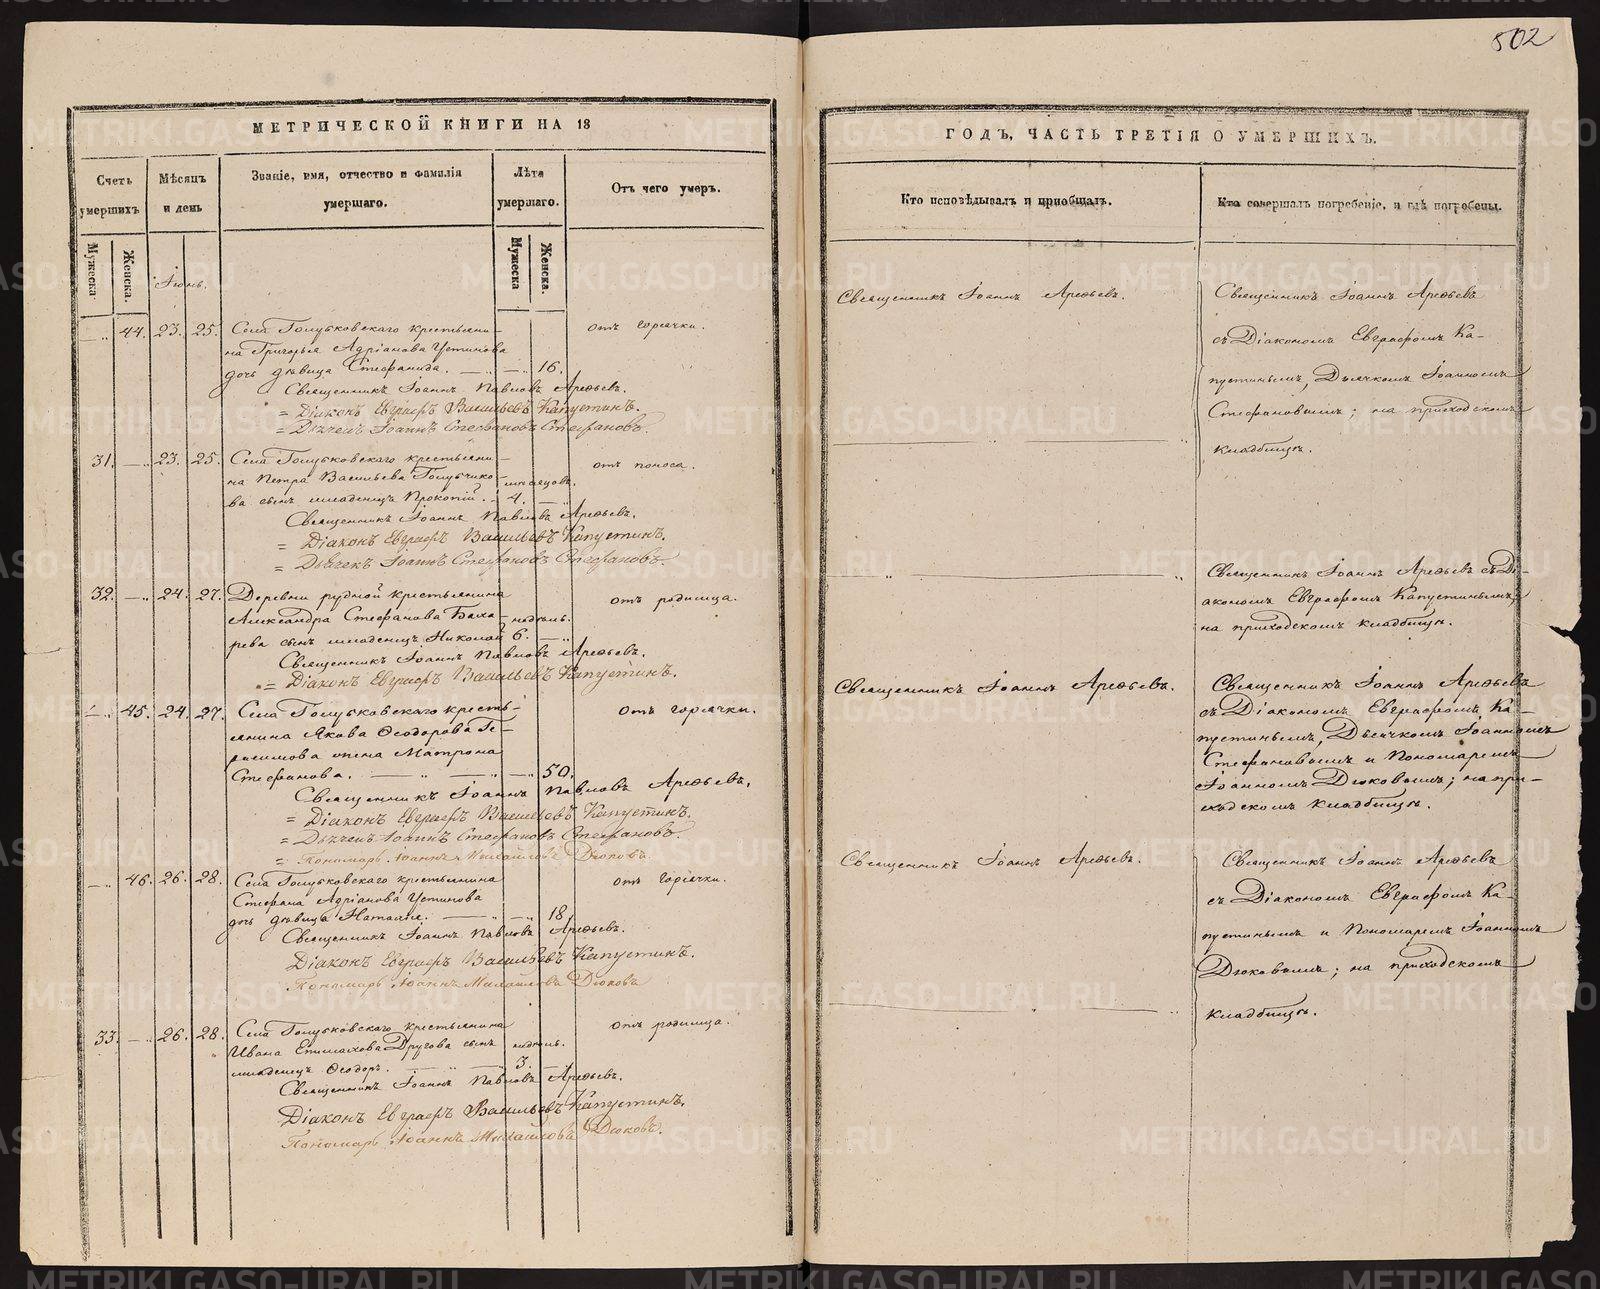 502
МЕТРИЧЕСКОЙ КНИГИ НА 18
Счетъ умершихъ
Мѣсяцъ и день
Званіе, имя, отчество и фамилія умершаго.
Лѣта умершаго.
Отъ чего умеръ.
Мужеска.
Женска.
Мужеска
Женска.
Іюнь.
— „ 44. 23. 25. Села Голубковскаго крестьяни- отъ горячки.
на Григорья Адріанова Устинова
дочь дѣвица Стефанида. — „ — „ 16.
Священникъ Іоаннъ Павловъ Арефьевъ.
= Діаконъ Евграфъ Васильевъ Капустинъ.
= Дьячекъ Іоаннъ Стефановъ Стефановъ.
31. — „ 23. 25. Села Голубковскаго крестьяни- отъ поноса.
на Петра Васильева Голубчико- мѣсяцовъ.
ва сынъ младенецъ Прокопій. 4. — „
Священникъ Іоаннъ Павловъ Арефьевъ.
= Діаконъ Евграфъ Васильевъ Капустинъ.
= Дьячекъ Іоаннъ Стефановъ Стефановъ.
32. — „ 24. 27. Деревни рудной крестьянина отъ родимца.
Александра Стефанова Баха- недѣль.
рева сынъ младенецъ Николай 6. — „
Священникъ Іоаннъ Павловъ Арефьевъ.
= Діаконъ Евграфъ Васильевъ Капустинъ.
— „ 45. 24. 27. Села Голубковскаго кресть- отъ горячки.
янина Якова Ѳеодорова Ге-
расимова жена Матрона
Стефанова. — „ — „ — 50.
Священникъ Іоаннъ Павловъ Арефьевъ.
= Діаконъ Евграфъ Васильевъ Капустинъ.
= Дьячекъ Іоаннъ Стефановъ Стефановъ.
= Пономарь Іоаннъ Михайловъ Дюковъ.
— „ 46. 26. 28. Села Голубковскаго крестьянина отъ горячки.
Стефана Адріанова Устинова
дочь дѣвица Наталія. — „ — „ 18.
Священникъ Іоаннъ Павловъ Арефьевъ.
Діаконъ Евграфъ Васильевъ Капустинъ.
Пономарь Іоаннъ Михайловъ Дюковъ
33. — „ 26. 28. Села Голубковскаго крестьянина отъ родимца.
Ивана Епимахова Другова сынъ недѣль.
младенецъ Ѳеодоръ. — „ — „ 3. —
Священникъ Іоаннъ Павловъ Арефьевъ.
Діаконъ Евграфъ Васильевъ Капустинъ.
Пономарь Іоаннъ Михайловъ Дюковъ.
ГОДЪ, ЧАСТЬ ТРЕТІЯ О УМЕРШИХЪ.
Кто исповѣдывалъ и пріобщалъ.
Кто совершалъ погребеніе, и гдѣ погребены.
Священникъ Іоаннъ Арефьевъ.
Священникъ Іоаннъ Арефьевъ
съ Діакономъ Евграфомъ Ка-
пустинымъ, Дьячкомъ Іоанномъ
Стефановымъ; на приходскомъ
кладбищѣ.
Священникъ Іоаннъ Арефьевъ съ Ді-
акономъ Евграфомъ Капустинымъ;
на приходскомъ кладбищѣ.
Священникъ Іоаннъ Арефьевъ.
Священникъ Іоаннъ Арефьевъ
съ Діакономъ Евграфомъ Ка-
пустинымъ, Дьячкомъ Іоанномъ
Стефановымъ и Пономаремъ
Іоанномъ Дюковымъ; на при-
ходскомъ кладбищѣ.
Священникъ Іоаннъ Арефьевъ.
Священникъ Іоаннъ Арефьевъ
съ Діакономъ Евграфомъ Ка-
пустинымъ и Пономаремъ Іоанномъ
Дюковымъ; на приходскомъ
кладбищѣ.
METRIKI.GASO-URAL.RU